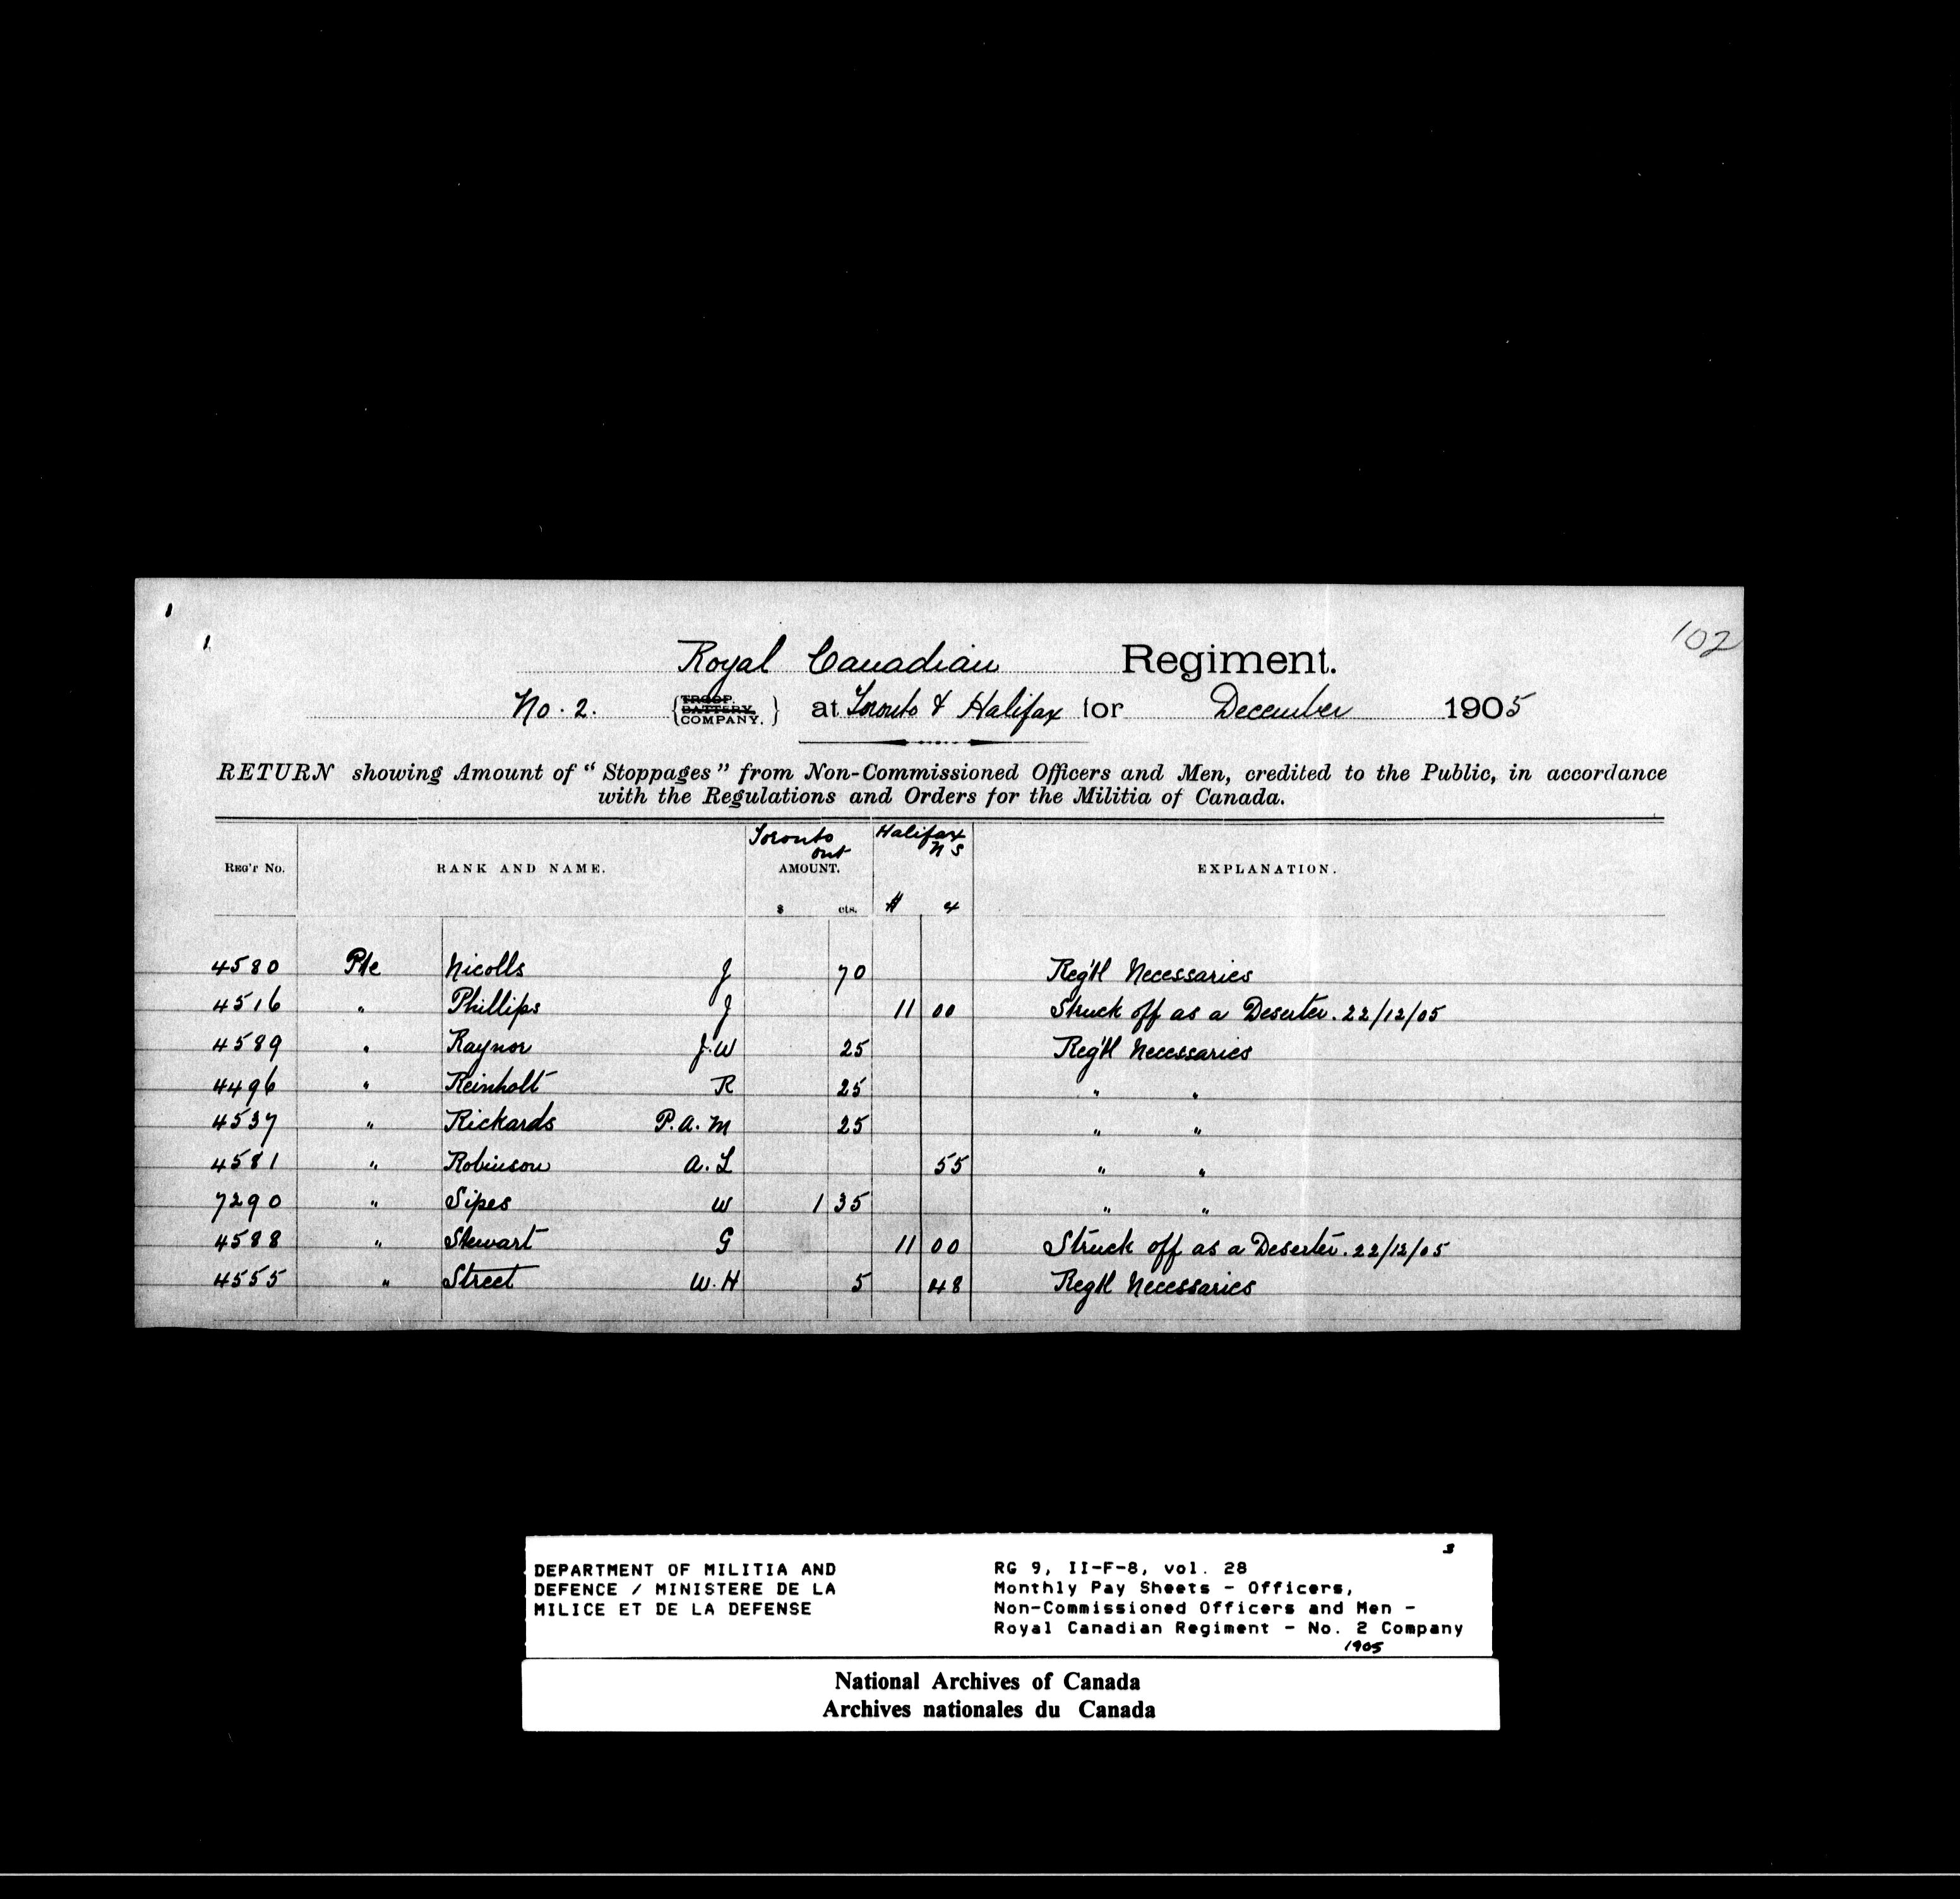 102
Royal Canadian Regiment.
No. 2. {TROOP. BATTERY. COMPANY.} at Toronto & Halifax for December 1905
RETURN showing Amount of "Stoppages" from Non-Commissioned Officers and Men, credited to the Public, in accordance
with the Regulations and Orders for the Militia of Canada.
REG'T No. RANK AND NAME. Toronto Ont AMOUNT. $ cts. Halifax N S $ ¢ EXPLANATION.
4580 Pte Nicolls J 70 Reg'tl Necessaries
4516 " Phillips J 11 00 Struck off as a Deserter. 22/12/05
4589 " Raynor J.W 25 Reg'tl Necessaries
4496 " Reinholt R 25 " "
4537 " Rickards P.A.M 25 " "
4581 " Robinson A.L 55 " "
7290 " Sipes W 1 35 " "
4588 " Stewart G 11 00 Struck off as a Deserter. 22/12/05
4555 " Street W.H 5 48 Regtl Necessaries
3
DEPARTMENT OF MILITIA AND
DEFENCE / MINISTERE DE LA
MILICE ET DE LA DEFENSE
RG 9, II-F-8, vol. 28
Monthly Pay Sheets - Officers,
Non-Commissioned Officers and Men -
Royal Canadian Regiment - No. 2 Company
1905
National Archives of Canada
Archives nationales du Canada